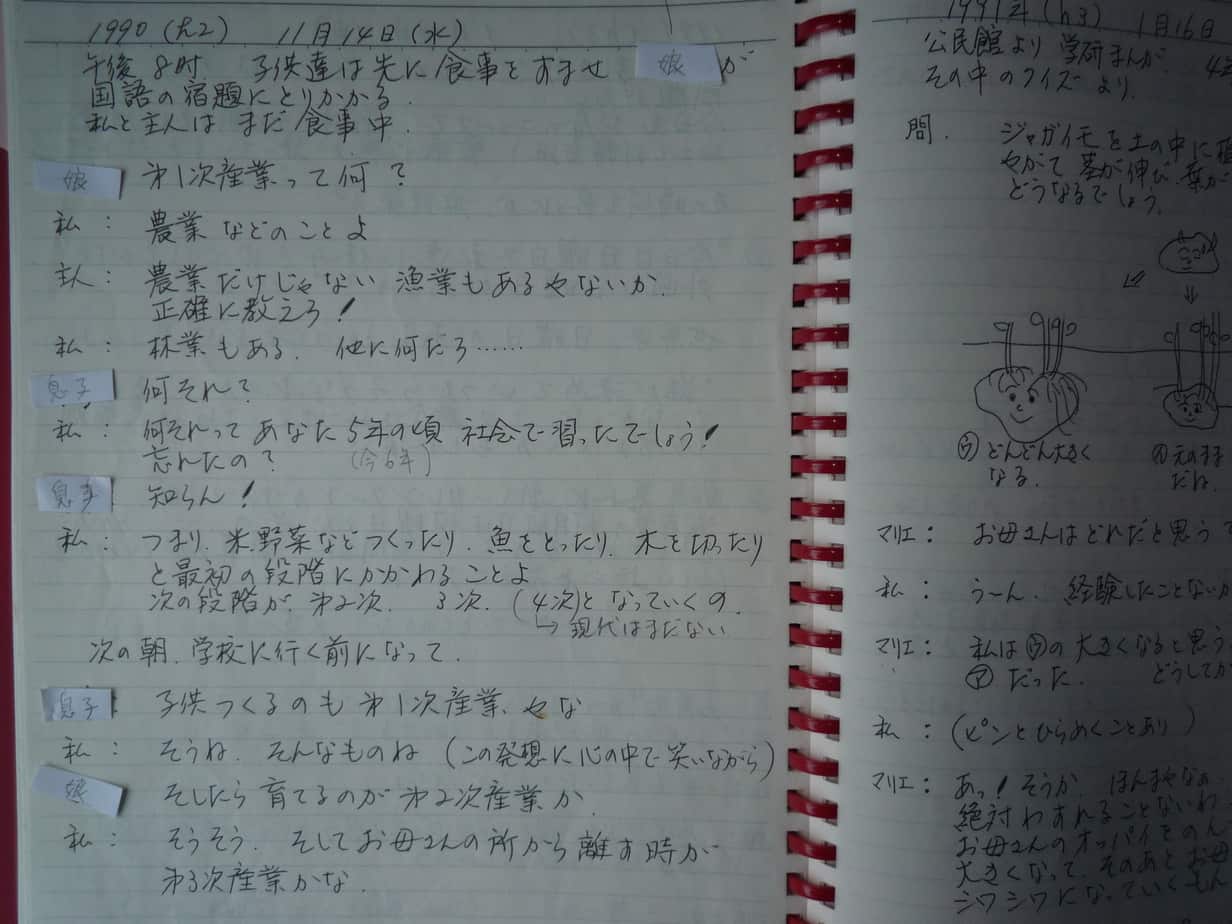 1990 (h2) 11月14日(水)
午後8時 子供達は先に食事をすませ 娘 が
国語の宿題にとりかかる.
私と主人は まだ食事中.
娘 才1次産業って何?
私: 農業などのことよ
主人: 農業だけじゃない 漁業もあるやないか.
正確に教えろ!
私: 林業もある. 他に何だろ……
息子 何それ?
私: 何それって あなた5年の頃 社会で習ったでしょう!
忘れたの? (今6年)
息子 知らん!
私: つまり.米.野菜などつくったり.魚をとったり.木を切ったり
と最初の段階にかかわることよ
次の段階が.才2次. 3次. (4次)と なっていくの.
→現代はまだない
次の朝.学校に行く前になって.
息子: 子供つくるのも 才1次産業やな
私: そうね. そんなものね (この発想に心の中で笑いながら)
娘 そしたら育てるのが才2次産業か.
私: そうそう. そしてお母さんの所から離す時が
才3次産業かな.
1991年(h3) 1月16日
公民館より 学研まんが.
その中のクイズより.
問. ジャガイモを土の中に
やがて 茎が伸び.葉が
どうなるでしょう.
㋒どんどん大きく
なる.
元のまま
だね.
マリエ: お母さんはどれだと思う
私: う~ん. 経験したことない
マリエ: 私は㋒の大きくなると思う
㋐だった. どうして
私: (ピンとひらめくことあり)
マリエ: あっ!そうか. ほんまやなぁ
絶対わすれることないわ
お母さんのオッパイをのん
大きくなって.そのあとお母
シワシワになっていくもん